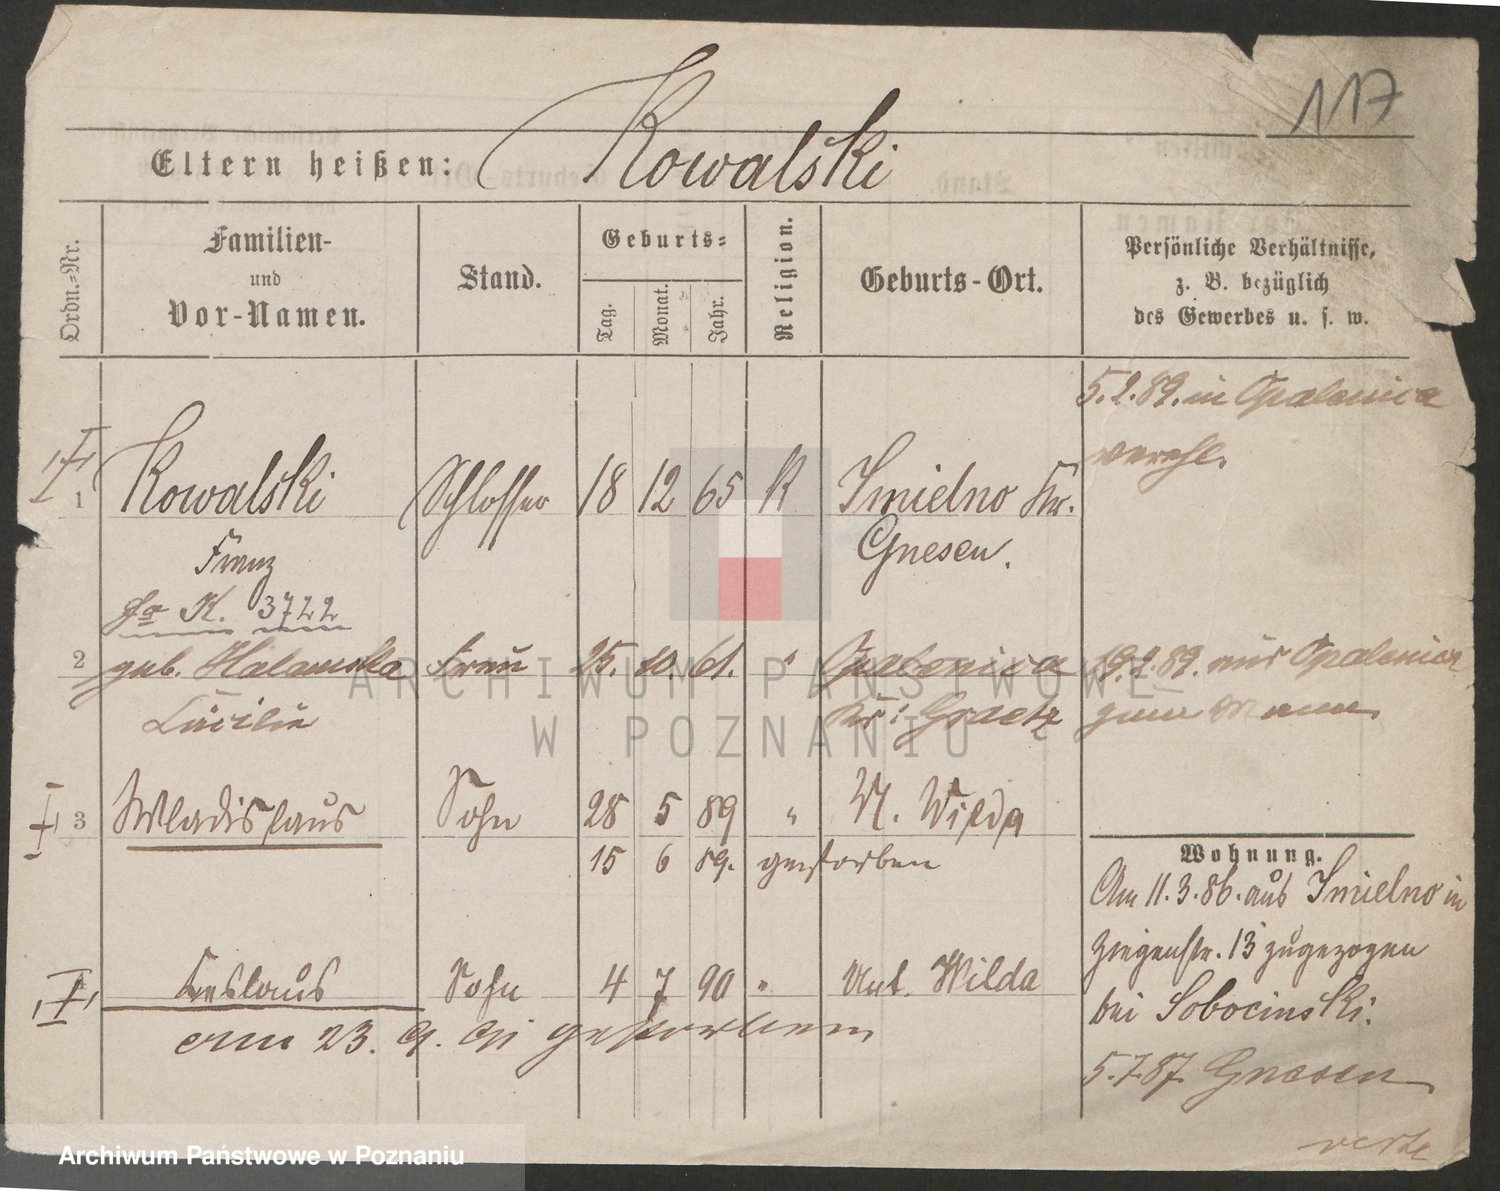 117
Eltern heißen: Kowalski
Ordn.-Nr.
Familien-
und
Vor-Namen.
Stand.
Geburts-
Tag.
Monat.
Jahr.
Religion.
Geburts-Ort.
Persönliche Verhältnisse,
z. B. bezüglich
des Gewerbes u. s. w.
5.2.89. in Opalenica
verehl.
1 Kowalski Schlosser 18 12 65 K Imielno Kr.
Franz Gnesen.
K. 3722
2 geb. Frau 25. 10. 61. " Opalenica 19.2.89. aus Opalenica
Cäcilie Kr: Graetz zum Mann
3 Wladislaus Sohn 28 5 89 " U. Wilda
15 6 89. gestorben
Wohnung.
Am 11.3.86. aus Imielno in
Ziegenstr. 13 zugezogen
bei Sobocinski.
4 Ceslaus Sohn 4 7 90 " Unt. Wilda
am 23. 9. 91 gestorben
5.7.87. Gnesen
verte
ARCHIWUM PAŃSTWOWE
W POZNANIU
Archiwum Państwowe w Poznaniu